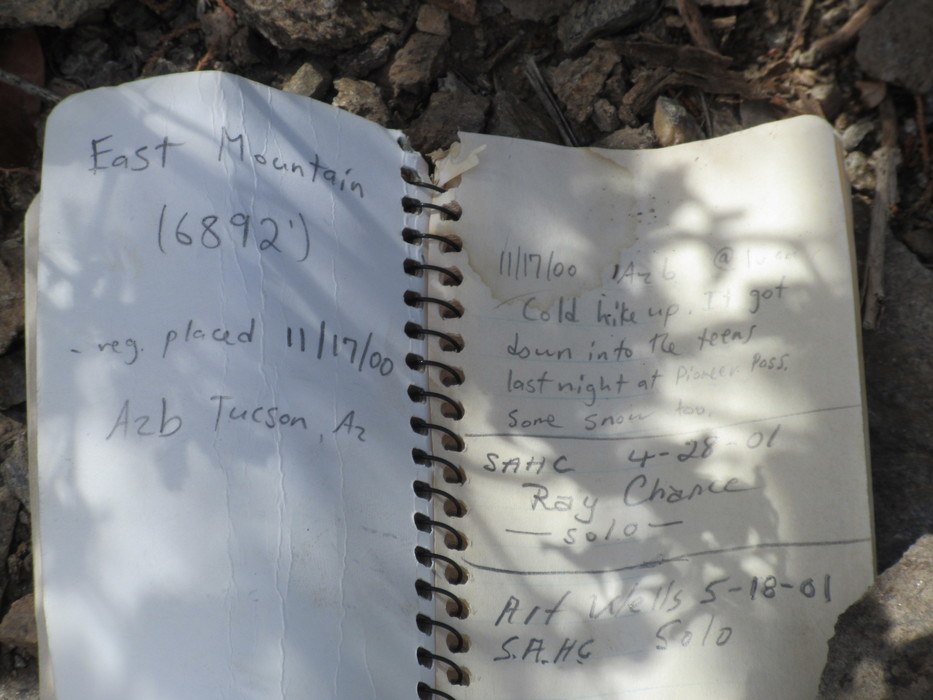 East Mountain
(6892')
- reg. placed 11/17/00
Azb Tucson, Az
11/17/00 Azb @
Cold hike up. It got
down into the teens
last night at Pioneer Pass.
Some snow too.
SAHC 4-28-01
Ray Chance
— solo —
Art Wells 5-18-01
S.A.H.C Solo